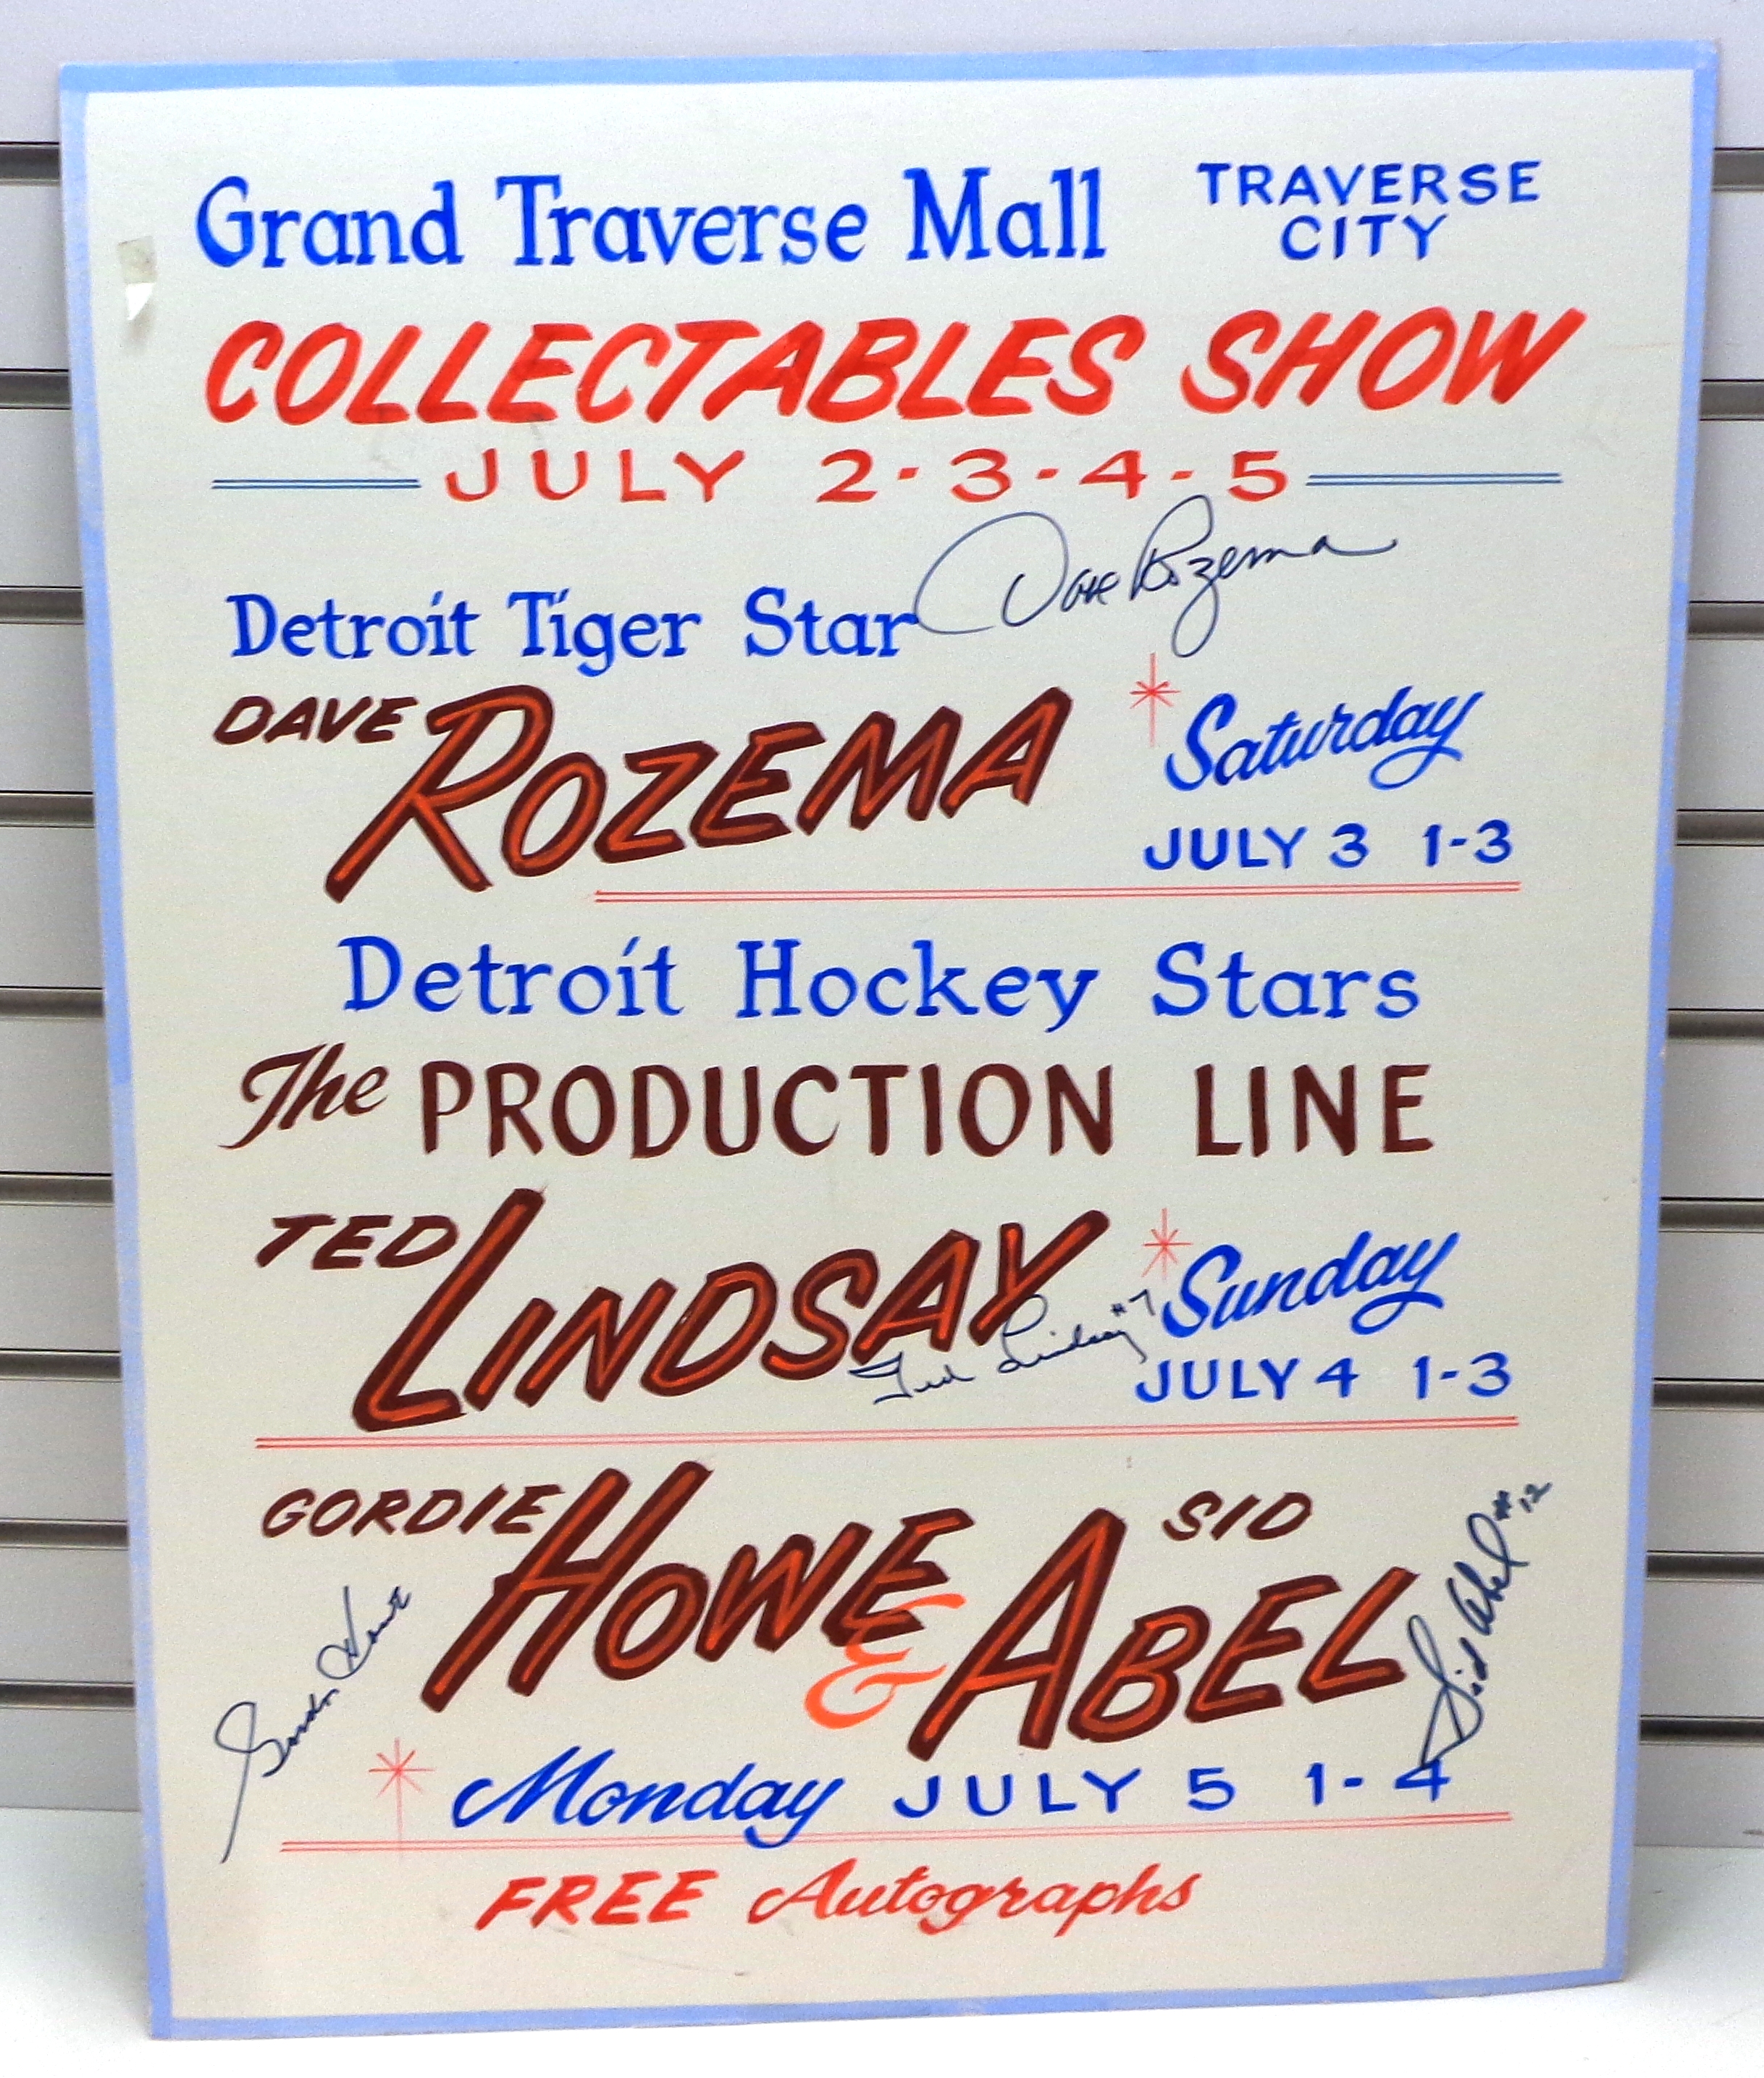 Grand Traverse Mall TRAVERSE CITY
COLLECTABLES SHOW
JULY 2-3-4-5
Dave Rozema
Detroit Tiger Star
DAVE ROZEMA
Saturday
JULY 3 1-3
Detroit Hockey Stars
The PRODUCTION LINE
TED LINDSAY
Sunday
Ted Lindsay #7
JULY 4 1-3
GORDIE HOWE & SID ABEL
Gordie Howe
Sid Abel #12
Monday JULY 5 1-4
FREE Autographs